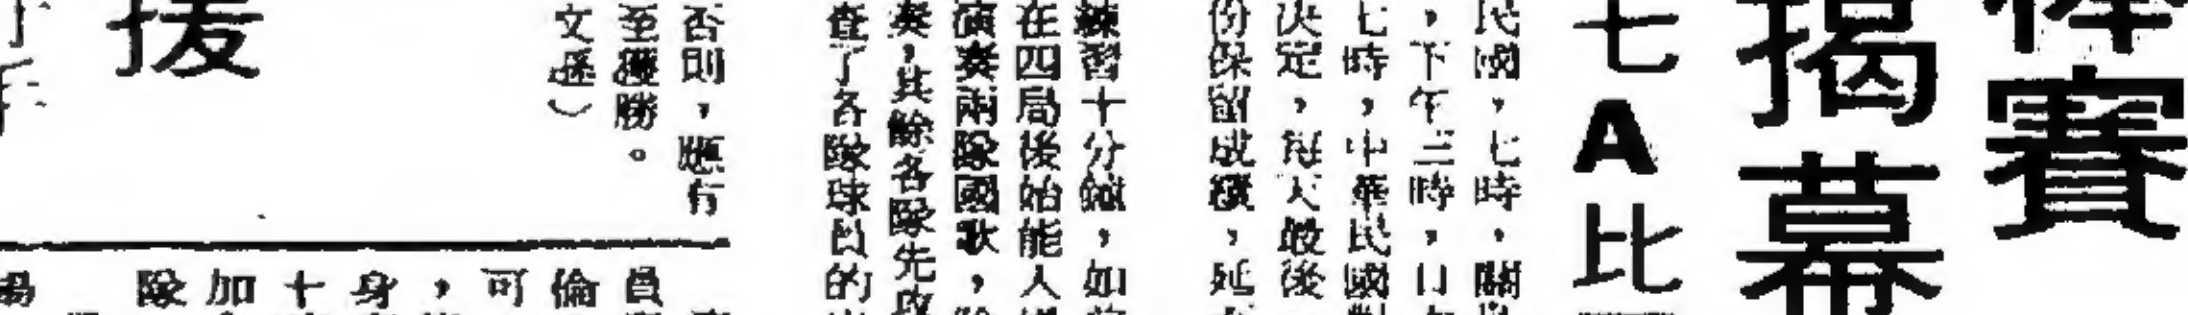 棒賽
揭幕
七A比
民國，七時，關
，下午三時，日
七時，中華民國對
決定，每天最後
份保留成績，延
練習十分鐘，如
在四局後始能入
演奏兩隊國歌，
奏，其餘各隊先
查了各隊球員的
否則，應有
至獲勝。
文遜）
援
員
倫
可
，
身
十
加
隊